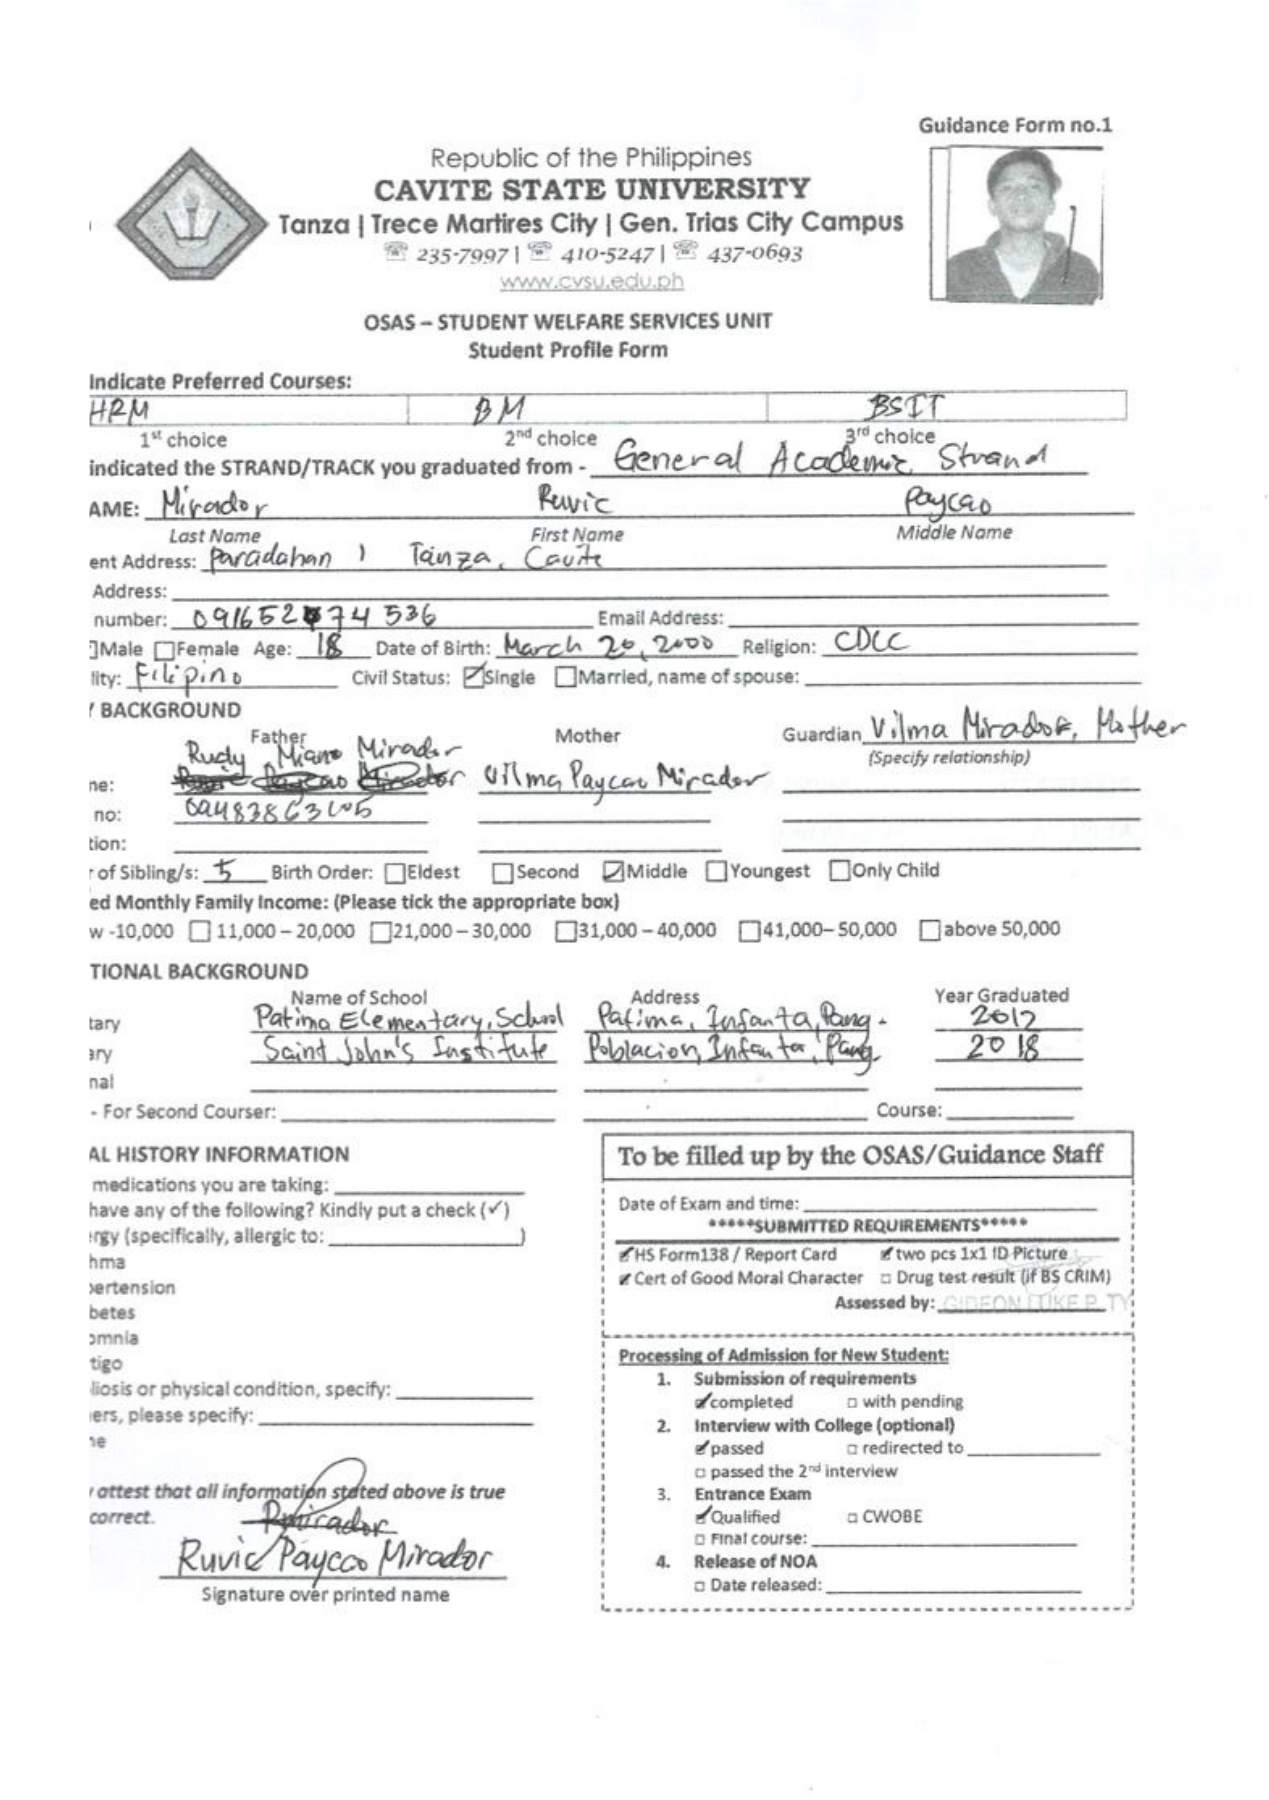 Guidance Form no.1
Republic of the Philippines
CAVITE STATE UNIVERSITY
Tanza | Trece Martires City | Gen. Trias City Campus
☏ 235-7997 | ☏ 410-5247 | ☏ 437-0693
www.cvsu.edu.ph
OSAS – STUDENT WELFARE SERVICES UNIT
Student Profile Form
Indicate Preferred Courses:
HRM BM BSIT
1st choice 2nd choice 3rd choice
indicated the STRAND/TRACK you graduated from - General Academic Strand
AME: Mirador Ruvic Paycao
Last Name First Name Middle Name
ent Address: Paradahan 1 Tanza, Cavite
Address:
number: 091652 74 536 Email Address:
Male ☐Female Age: 18 Date of Birth: March 20, 2000 Religion: CDCC
lity: Filipino Civil Status: ☑Single ☐Married, name of spouse:
BACKGROUND
Father Mother Guardian Vilma Mirador, Mother
(Specify relationship)
Rudy Miano Mirador
ne: Vilma Paycao Mirador
no:
tion:
r of Sibling/s: 5 Birth Order: ☐Eldest ☐Second ☑Middle ☐Youngest ☐Only Child
ed Monthly Family Income: (Please tick the appropriate box)
w -10,000 ☐ 11,000 – 20,000 ☐21,000 – 30,000 ☐31,000 – 40,000 ☐41,000– 50,000 ☐above 50,000
TIONAL BACKGROUND
Name of School Address Year Graduated
tary Patima Elementary School Patima, Infanta, Pang. 2012
ary Saint John's Institute Poblacion, Infanta, Pang. 2018
nal
- For Second Courser: Course:
AL HISTORY INFORMATION
medications you are taking:
have any of the following? Kindly put a check (✓)
rgy (specifically, allergic to: )
hma
pertension
betes
omnia
tigo
liosis or physical condition, specify:
ers, please specify:
ne
attest that all information stated above is true
correct.
RMirador
Ruvic Paycao Mirador
Signature over printed name
To be filled up by the OSAS/Guidance Staff
Date of Exam and time:
*****SUBMITTED REQUIREMENTS*****
☑HS Form138 / Report Card ☑two pcs 1x1 ID Picture
☑Cert of Good Moral Character ☐ Drug test result (if BS CRIM)
Assessed by: GIDEON LUKE P. TY
Processing of Admission for New Student:
1. Submission of requirements
☑completed ☐ with pending
2. Interview with College (optional)
☑passed ☐ redirected to
☐ passed the 2nd interview
3. Entrance Exam
☑Qualified ☐ CWOBE
☐ Final course:
4. Release of NOA
☐ Date released: